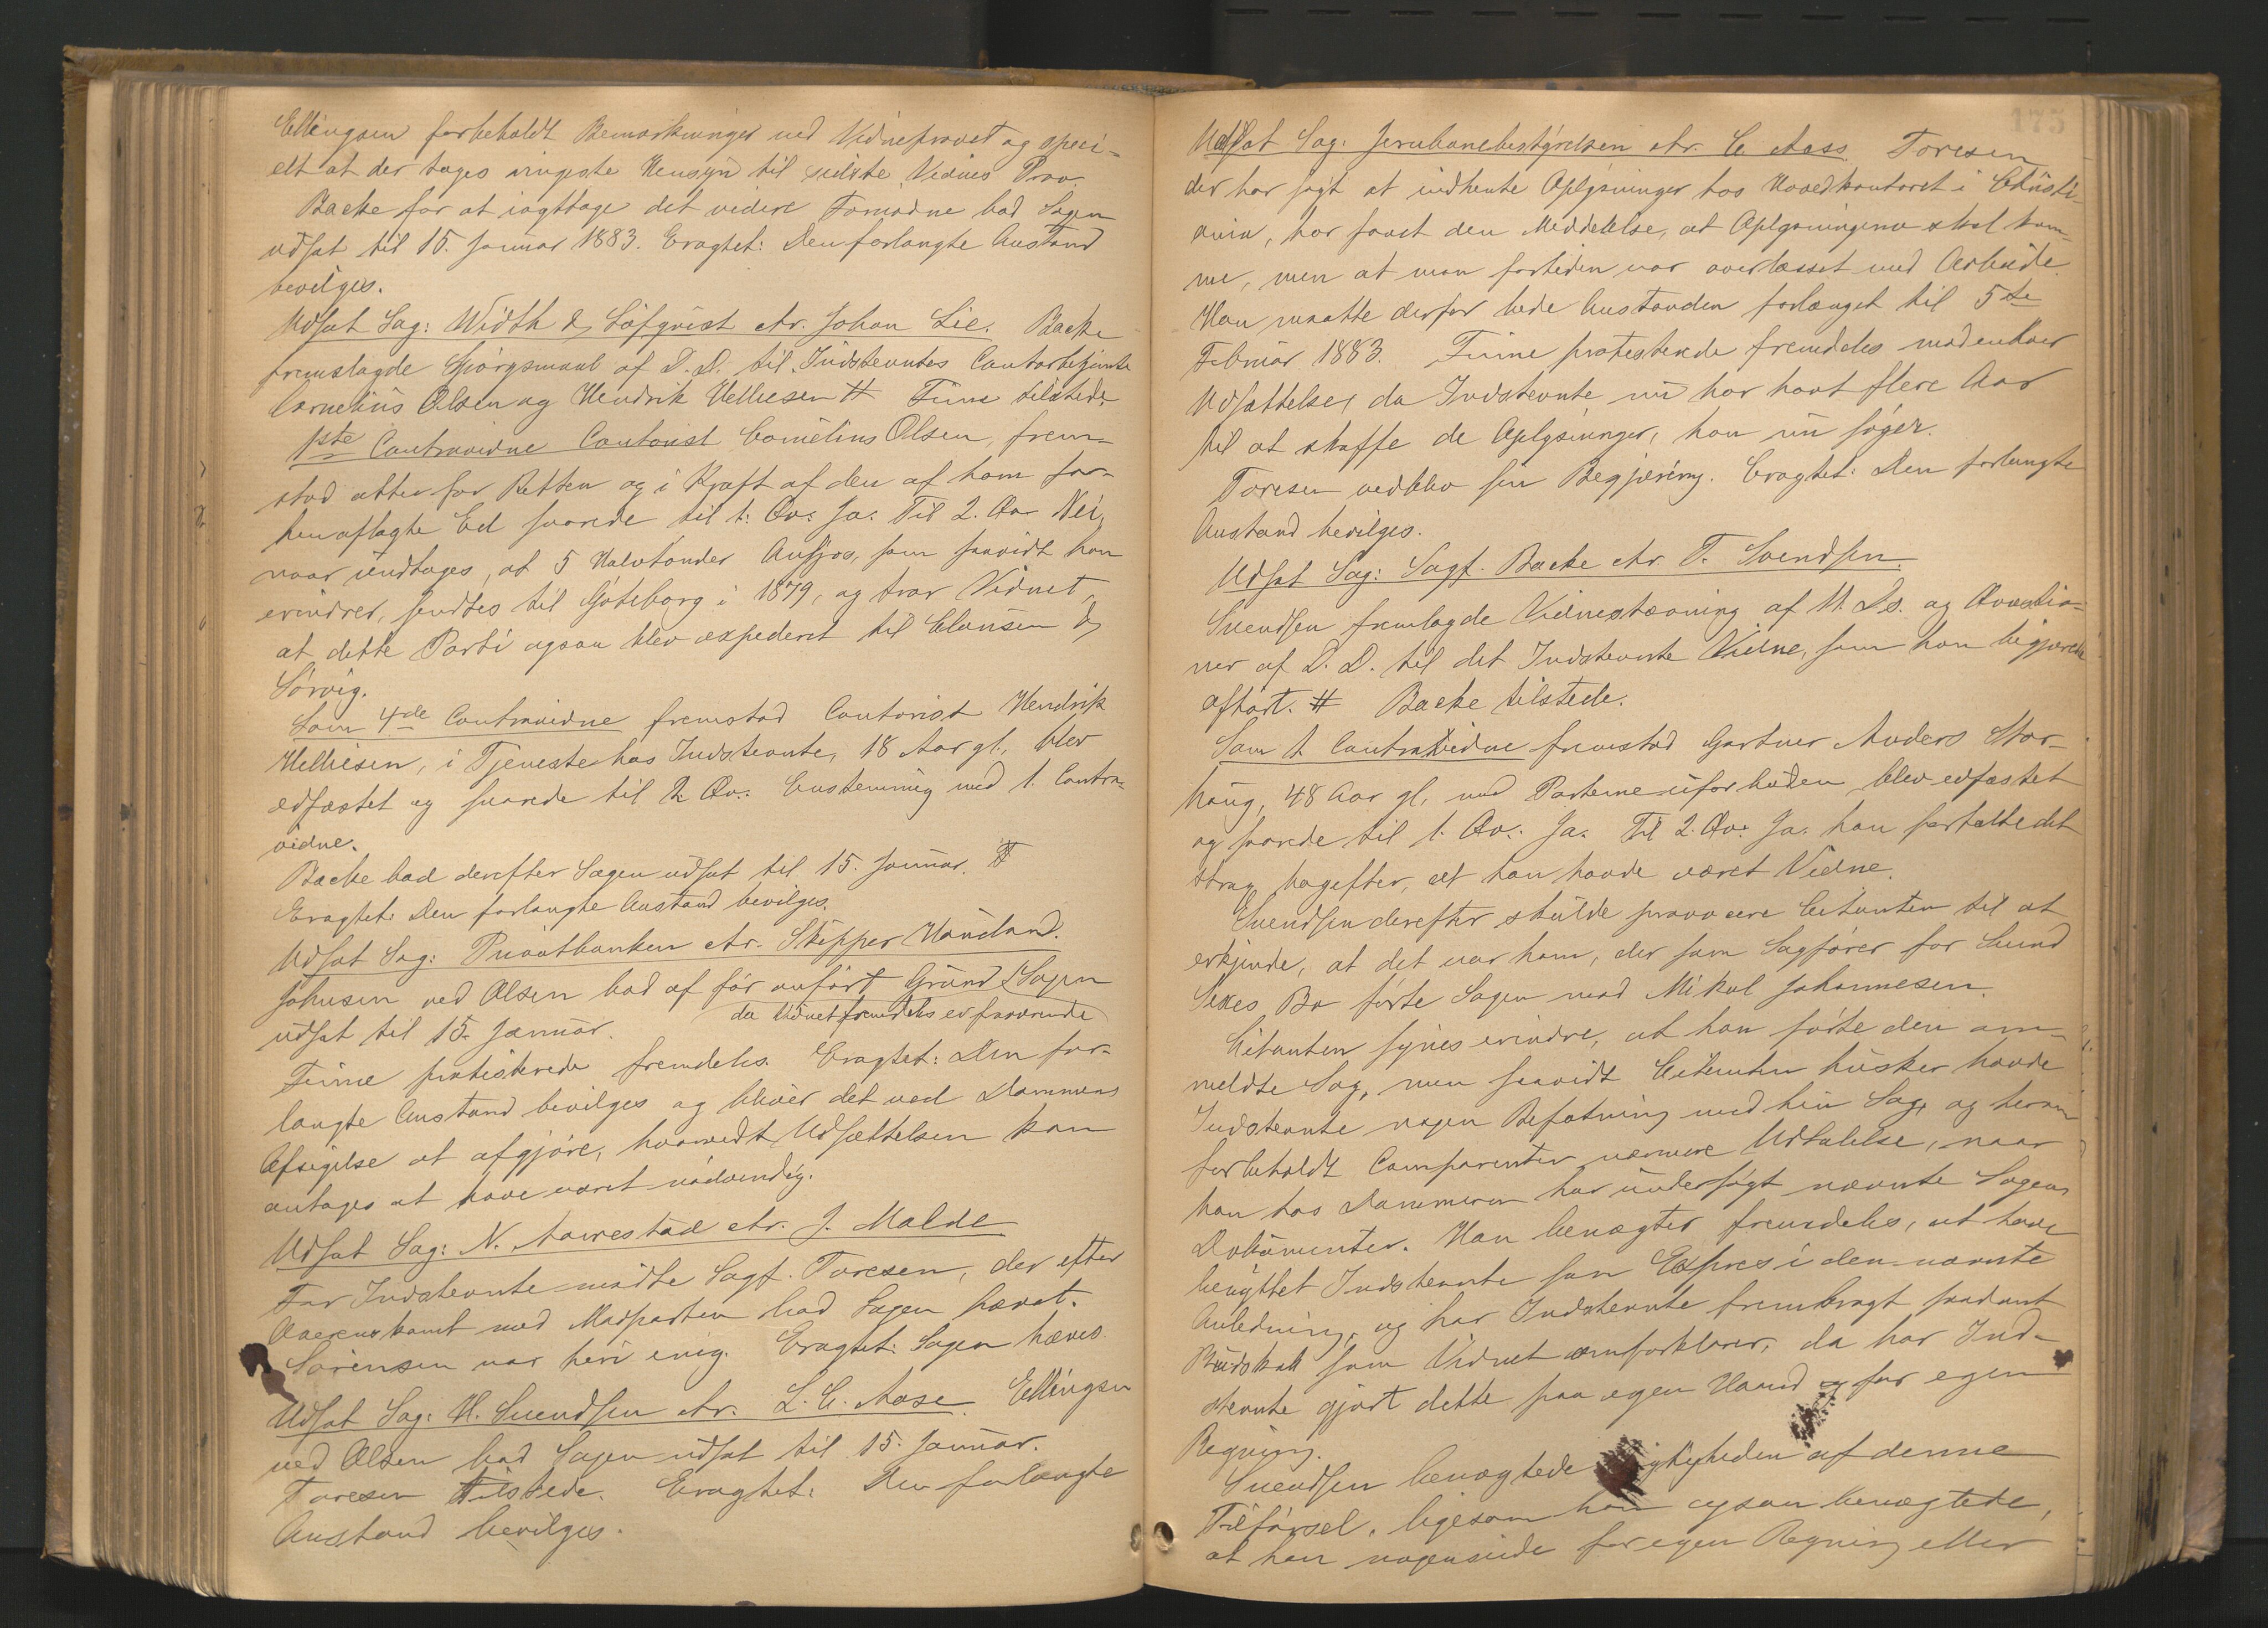 Ellingsen forbeholdt Bemærkninger ved Vidneprovet og speci-
elt at der tages ringeste Hensyn til sidste Vidnes Prov.
Backe for at iagttage det videre Fornødne bad Sagen
udsat til 15. Januar 1883. Eragtet: Den forlangte Anstand
bevilges.
Udsat Sag: Width & Löfqvist ctr. Johan Lie. Backe
fremlagde Spörgsmaal af D. D. til Indstevntes Contorbetjente
Cornelius Olsen og Hendrik Helliesen # Finne tilstede.
1ste Contravidne Contorist Cornelius Olsen, frem-
stod atter for Retten og i Kraft af den af ham for-
hen aflagte Ed svarede til 1. Qv: Ja. Til 2. Qv Nei,
naar undtages, at 5 Halvtönder Ansjos, som saavidt han
erindrer, sendtes til Göteborg i 1879, og tror Vidnet,
at dette Parti ogsaa blev expederet til Clausen &
Sörvig.
Som 4de Contravidne fremstod Contorist Hendrik
Helliesen, i Tjeneste hos Indstevnte, 18 Aar gl., blev
edfæstet og svarede til 2. Qv. Enstemmig med 1. Contra-
vidne.
Backe bad derefter Sagen udsat til 15. Januar. #
Eragtet: Den forlangte Anstand bevilges.
Udsat Sag: Privatbanken ctr. Skipper Hauland.
Johnsen ved Olsen bad af för anfört Grund Sagen
da Vidnet fremdeles er fraværende
udsat til 15. Januar.
Finne protesterede fremdeles. Eragtet: Den for-
langte Anstand bevilges og bliver det ved Dommens
Afsigelse at afgjöre, hvorvidt Udsættelsen kan
antages at have været nödvendig.
Udsat Sag: N. Aarrestad ctr. J. Malde
For Indstevnte mödte Sagf. Toresen, der efter
Overenskomst med Modparten bad Sagen hævet.
Sörensen var heri enig. Eragtet: Sagen hæves.
Udsat Sag: H. Svendsen ctr. L. C. Aase. Ellingsen
ved Olsen bad Sagen udsat til 15. Januar.
Toresen tilstede. Eragtet: Den forlangte
Anstand bevilges.
175
Udsat Sag: Jernbanebestyrelsen ctr. C. Aass. Toresen
der har sögt at indhente Oplysninger hos Hovedkontoret i Christi-
ania, har faaet den Meddelelse, at Oplysningerne skal kom-
me, men at man fortiden var overlæsset med Arbeide.
Han maatte derfor bede Anstanden forlænget til 5te
Februar 1883. Finne protesterede fremdeles mod enhver
Udsættelse, da Indstevnte nu har havt flere Aar
til at skaffe de Oplysninger, han nu söger.
Toresen vedblev sin Begjæring. Eragtet: Den forlangte
Anstand bevilges.
Udsat Sag: Sagf. Backe ctr. T. Svendsen.
Svendsen fremlagde Vidnestævning af M. Ds. og Qvæstio-
ner af D. D. til det Indstevnte Vidne, som han begjærede
afhört. # Backe tilstede.
Som 1. Contravidne fremstod Gartner Anders Stor-
haug, 48 Aar gl, med Parterne uforbuden, blev edfæstet
og svarede til 1. Qv. Ja. Til 2. Qv: Ja. han fortalte det
strax bagefter, at han havde været Vidne.
Svendsen derefter skulde provocere Citanten til at
erkjende, at det var ham, der som Sagförer for Svend
Bo förte Sagen mod Mikal Johannesen.
Citanten synes erindre, at han förte den om-
meldte Sag, men saavidt Citanten husker havde
Indstevnte ingen Befatning med hin Sag, og herom
forbeholdt Comparenten nærmere Udtalelse, naar
han hos Dommeren har undersögt nævnte Sagens
Dokumenter. Han benægter fremdeles, at have
benyttet Indstevnte som Expres i den nævnte
Anledning, og har Indstevnte frembragt saadant
Budskab som Vidnet omforklarer, da har Ind-
stevnte gjort dette paa egen Haand og for egen
Regning.
Svendsen benægtede Rigtigheden af denne
Tilförsel, ligesom han ogsaa benægtede,
at han nogensinde for egen Regning eller